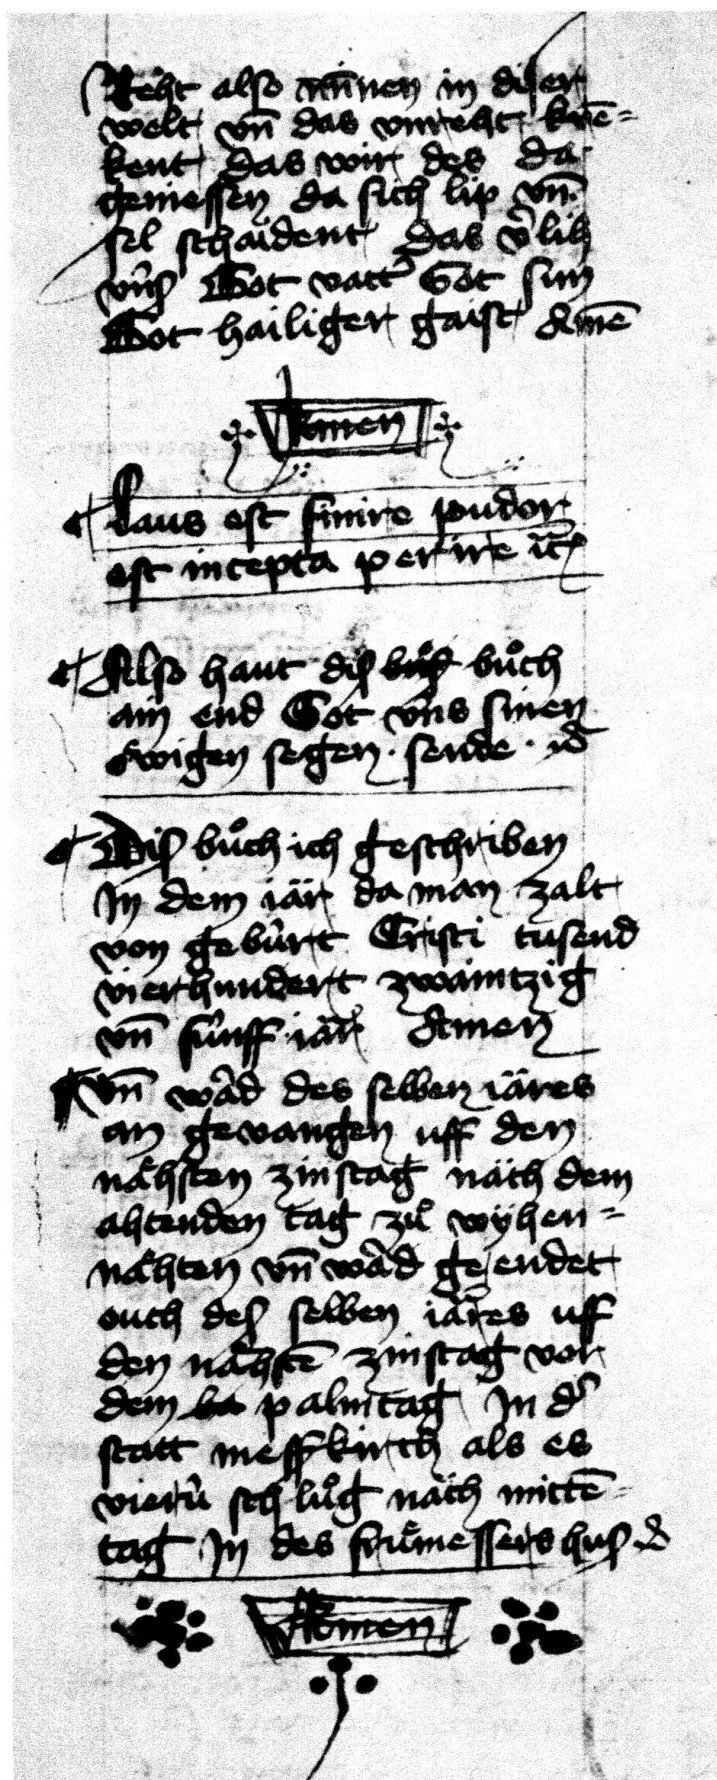 Reht also minnen in diser
welt vn̄ das vnreht krē=
kent das wir des da
geniessen da sich lip vn̄
sel schaident das v̓lih
vn̓ß Got vatt̓ Got sun
Got hailiger gaist Amē
Amen
Laus est finire pudor
est incepta perire ꝛc̄
Also haut diß bůch bůch
ain end Got vn̓s sinen
Ewigen segen · sende · ꝛc̄
Diß bůch ich geschriben
In dem iär da man zalt
von gebu̓rt Cristi tusend
vierhundert zwaintzig
vn̄ fu̓nff iär Amen
vn̄ wa̓d des selben iäres
an gevangen uff den
nähsten zinstag näch dem
ahtenden tag zů wÿhen=
nähten vn̄ wa̓d geendet
ouch deß selben iäres uff
den nähstē zinstag vor
dem palmtag In d̓
statt messkirch als es
vieru̓ schlůg näch mittē=
tag In des frůmessers huß ꝛc̄
Amen